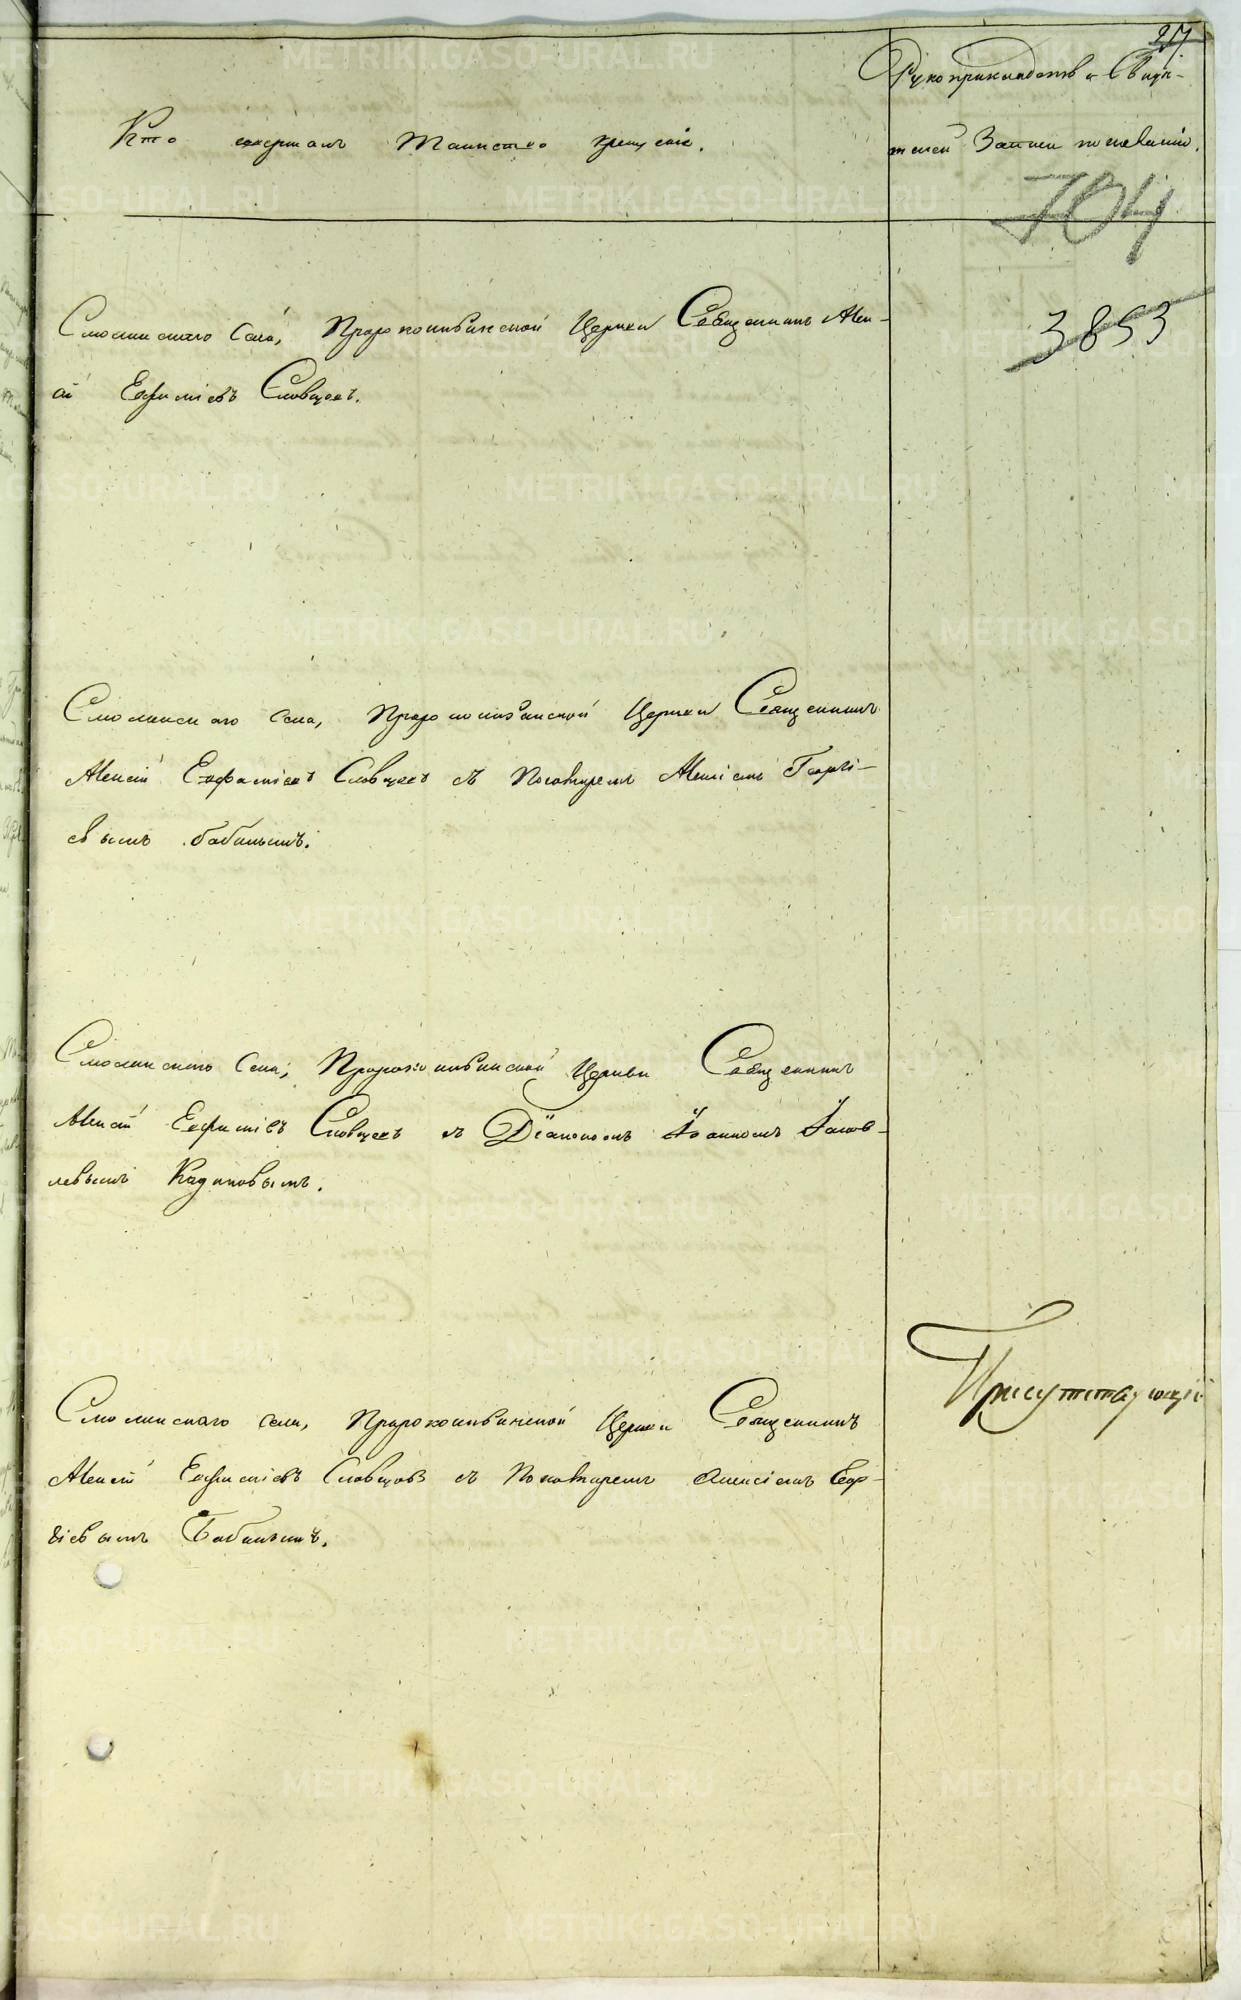 217
Рукоприкладство Свидѣ-
Кто совершалъ Таинство крещенія.
телей Записи по желанію.
704
3853
Смолинскаго села, Пророкоильинской Церкви Священникъ Алек-
ѣй Евфиміевъ Словцовъ.
Смолинскаго села, Пророкоильинской Церкви Священникъ
Алексѣй Евфиміевъ Словцовъ съ Пономаремъ Алексіемъ Георгі-
евымъ Бабинымъ.
Смолинскаго села, Пророкоильинской Церкви Священникъ
Алексѣй Евфиміевъ Словцовъ съ Діакономъ Іоанномъ Іаков-
левымъ Кадиковымъ.
Присутствующій
Смолинскаго села, Пророкоильинской Церкви Священникъ
Алексѣй Евфиміевъ Словцовъ съ Пономаремъ Алексіемъ Геор-
гіевымъ Бабинымъ.
METRIKI.GASO-URAL.RU